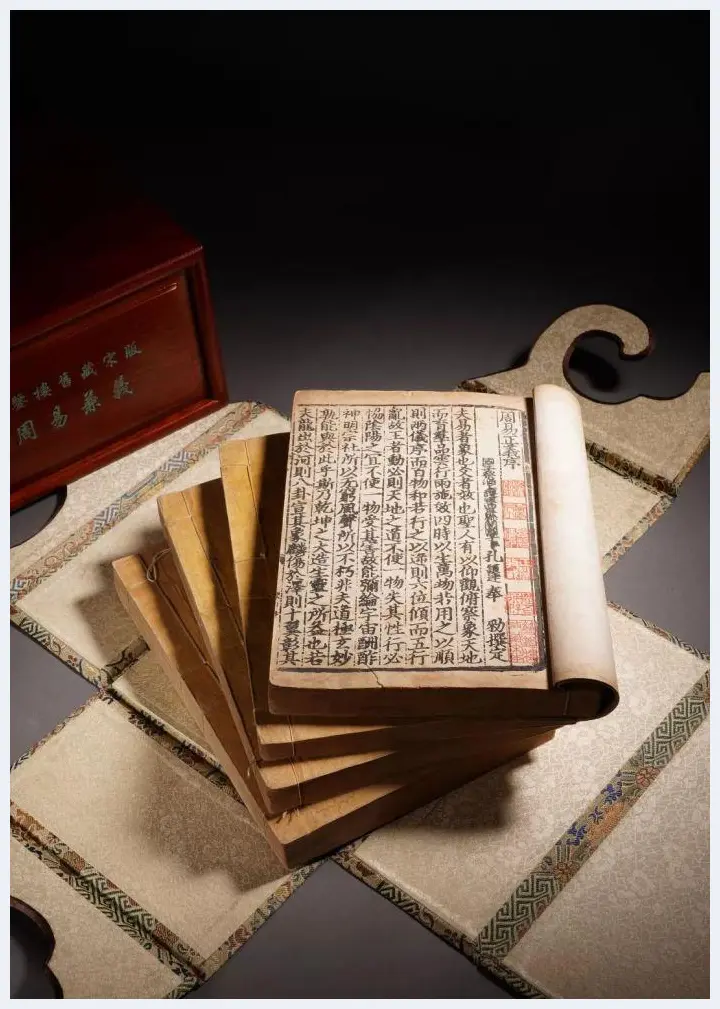 樓舊藏宋版
周易兼義
周易正義序
孔穎達奉 勑撰定
夫易者象也爻者效也聖人有以仰觀俯察象天地
而育羣品雲行雨施效四時以生萬物若用之以順
則兩儀序而百物和若行之以逆則六位傾而五行
亂故王者動必則天地之道不使一物失其性行必
恊隂陽之宜不使一物受其害故能彌綸宇宙酬酢
神明宗社所以无窮風聲所以不朽非夫道極玄妙
孰能與於此乎斯乃乾坤之大造生靈之所益也若
夫龍出於河則八卦宣其象麟傷於澤則十翼彰其